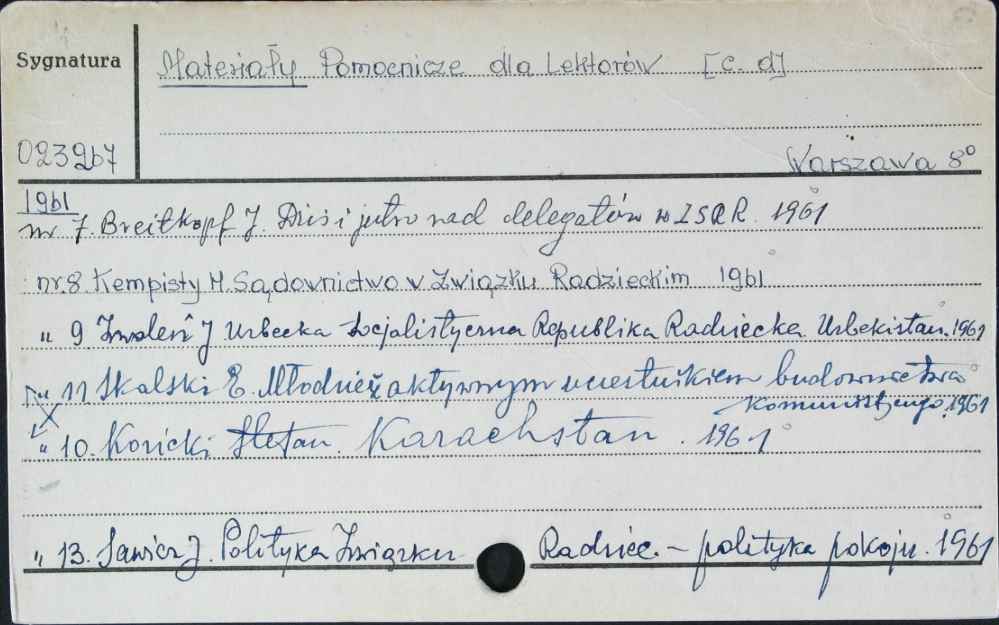 Sygnatura
Materiały Pomocnicze dla Lektorów [c. d]
023267
Warszawa 8°
1961
nr 7. Breitkopf J. Dziś i jutro rad delegatów w ZSRR. 1961
nr. 8. Kempisty M. Sądownictwo v Związku Radzieckim 1961
" 9 Zwoleń J Uzbecka Socjalistyczna Republika Radziecka Uzbekistan. 1961
" 11 Skalski E. Młodzież aktywnym uczestnikiem budownictwa
komunistycznego. 1961
" 10. Kozicki Stefan. Kazachstan. 1961
" 13. Sawicz J. Polityka Związku Radziec. – polityka pokoju. 1961